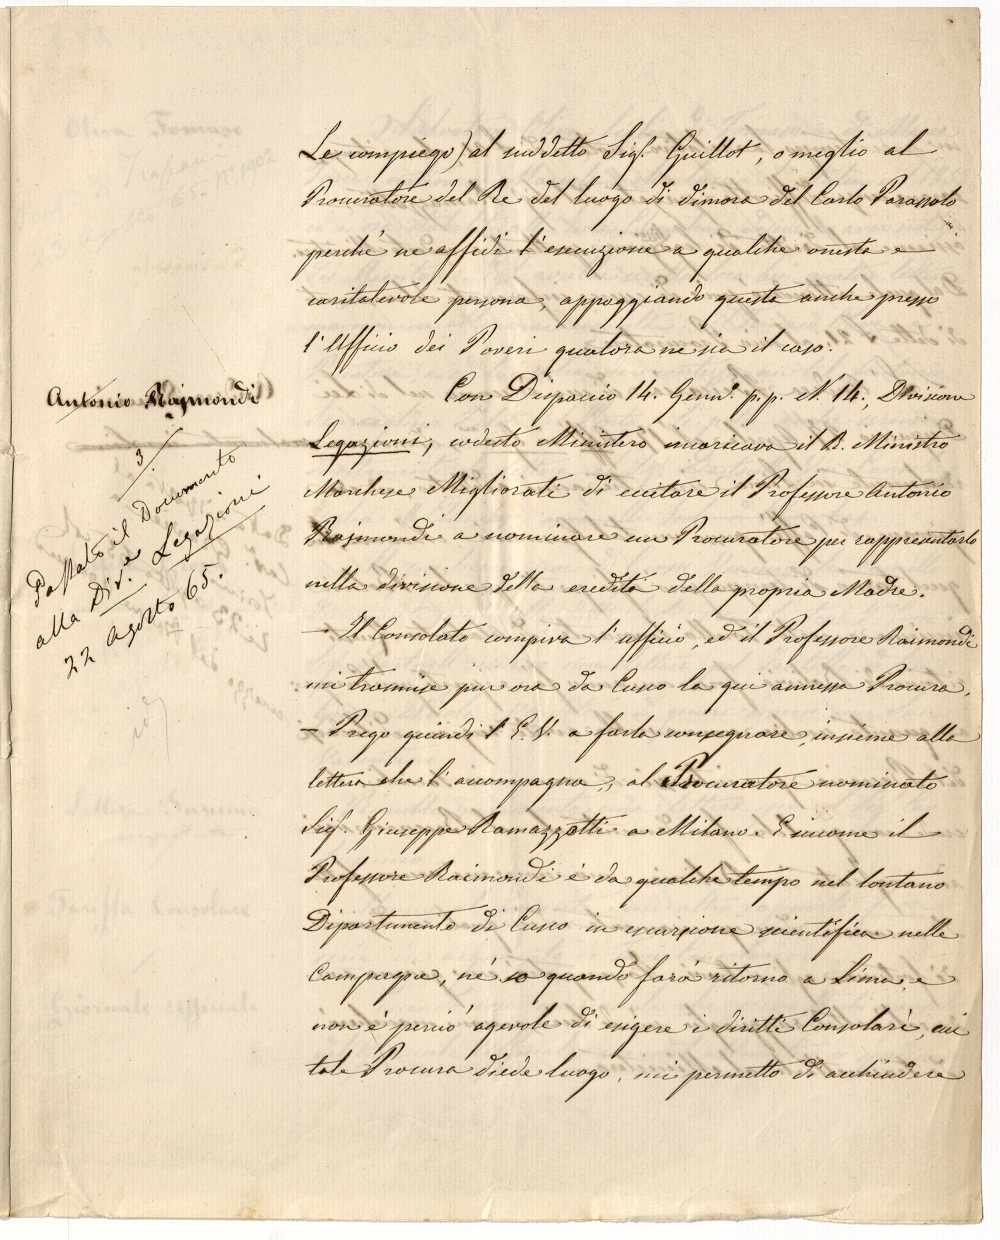 Le compiego) al suddetto Sigr. Guillot, o meglio al
Procuratore del Re del luogo di dimora del Carlo Parassolo
perchè ne affidi l'esecuzione a qualche onesta e
caritatevole persona, appoggiando questa anche presso
l'Ufficio dei Poveri qualora ne sia il caso.
Antonio Raimondi
Con Dispaccio 14. Genn.o p.p. N. 14., Divisione
Legazioni, codesto Ministero incaricava il R. Ministro
Marchese Migliorati di eccitare il Professore Antonio
Raimondi a nominare un Procuratore per rappresentarlo
nella divisione della eredità della propria Madre.
3
Passato il Documento
alla Div.e Legazioni
22 agosto 65.
— Il Consolato compiva l'ufficio, ed il Professore Raimondi
mi trasmise pur ora da Cusco la qui annessa Procura.
— Prego quindi l'E.V. a farla consegnare, insieme alla
lettera che l'accompagna, al Procuratore nominato
Sigr. Giuseppe Ramazzotti a Milano. E siccome il
Professore Raimondi è da qualche tempo nel lontano
Dipartimento di Cusco in escursione scientifica nelle
Campagne, nè so quando farà ritorno a Lima, e
non è perciò agevole di esigere i diritti Consolari, cui
tale Procura diede luogo, mi permetto di acchiudere